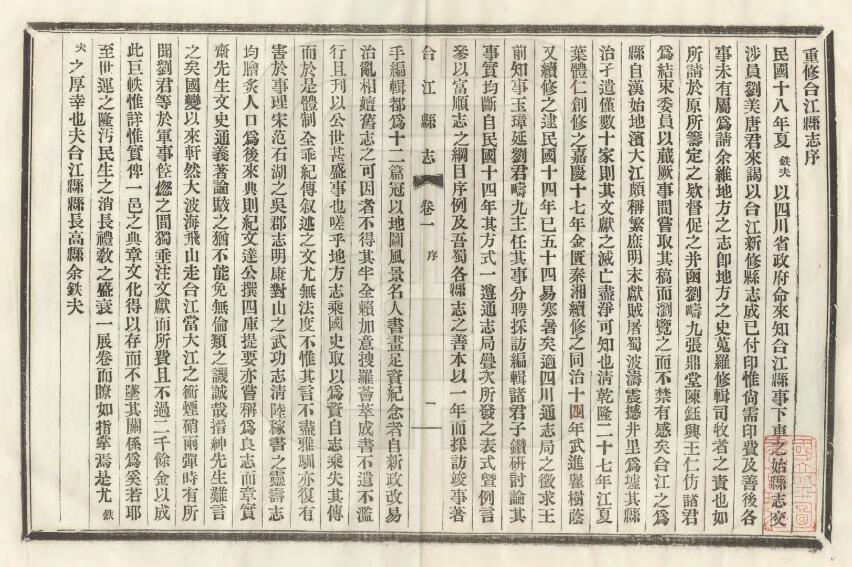 重修合江縣志序
民國十八年夏鉄夫以四川省政府命來知合江縣事下車之始縣志交
涉員劉美唐君來謁以合江新修縣志成已付印惟尙需印費及善後各
事未有屬爲請余維地方之志卽地方之史蒐羅修輯司牧者之責也如
所請於原所籌定之欵督促之并函劉疇九張鼎堂陳鈺興王仁仿諸君
爲結束委員以蕆厥事間嘗取其稿而瀏覽之而不禁有感矣合江之爲
縣自漢始地濱大江頗稱繁庶明末獻賊屠蜀波濤震撼井里爲墟其縣
治孑遺僅數十家則其文獻之滅亡盡淨可知也淸乾隆二十七年江夏
葉體仁創修之嘉慶十七年金匱秦湘續修之同治十四年武進瞿樹蔭
又續修之逮民國十四年已五十四易寒暑矣適四川通志局之徵求王
前知事玉璋延劉君疇九主任其事分聘採訪編輯諸君子鑽硏討論其
事實均斷自民國十四年其方式一遵通志局疊次所發之表式曁例言
參以富順志之綱目序例及吾蜀各縣志之善本以一年而採訪竣事著
合江縣志 卷一 序 二
手編輯都爲十二篇冠以地圖風景名人書畫足資紀念者自新政改易
治亂相嬗舊志之可因者不得其半全賴加意搜羅薈萃成書不遺不濫
行且刊以公世甚盛事也嗟乎地方志乘國史取以爲資自志乘失其傳
而於是體制全乖紀傳叙述之文尤無法度不惟其言不盡雅馴亦復有
害於事理宋范石湖之吳郡志明康對山之武功志淸陸稼書之靈壽志
均膾炙人口爲後來典則紀文達公撰四庫提要亦嘗稱爲良志而章實
齋先生文史通義著論駁之猶不能免無倫類之譏誠哉搢紳先生難言
之矣國變以來軒然大波海飛山走合江當大江之衝煙硝雨彈時有所
聞劉君等於軍事倥偬之間獨垂注文獻而所費且不過二千餘金以成
此巨帙惟詳惟實俾一邑之典章文化得以存而不墜其關係爲奚若耶
至世運之隆汚民生之消長禮敎之盛衰一展卷而瞭如指掌焉是尤鉄
夫之厚幸也夫合江縣縣長高縣余鉄夫